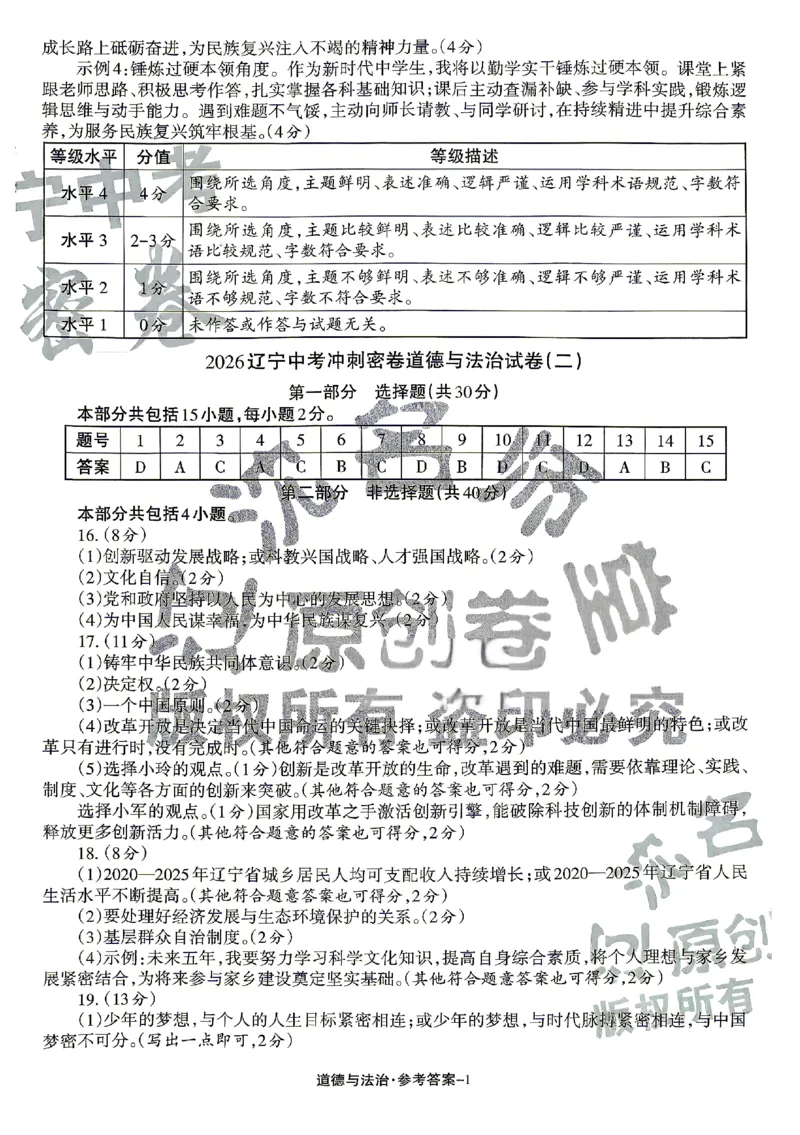 成长路上砥砺奋进,为民族复兴注入不竭的精神力量。(4分)
示例4:锤炼过硬本领角度。作为新时代中学生,我将以勤学实干锤炼过硬本领。课堂上紧
跟老师思路、积极思考作答,扎实掌握各科基础知识;课后主动查漏补缺、参与学科实践,锻炼逻
辑思维与动手能力。遇到难题不气馁,主动向师长请教、与同学研讨,在持续精进中提升综合素
养,为服务民族复兴筑牢根基。(4分)
等级水平 分值 等级描述
水平4 4分 围绕所选角度,主题鲜明、表述准确、逻辑严谨、运用学科术语规范、字数符
合要求。
水平3 2-3分 围绕所选角度,主题比较鲜明、表述比较准确、逻辑比较严谨、运用学科术
语比较规范、字数符合要求。
水平2 1分 围绕所选角度,主题不够鲜明、表述不够准确、逻辑不够严谨、运用学科术
语不够规范、字数不符合要求。
水平1 0分 未作答或作答与试题无关。
2026辽宁中考冲刺密卷道德与法治试卷(二)
第一部分 选择题(共30分)
本部分共包括15小题,每小题2分。
题号 1 2 3 4 5 6 7 8 9 10 11 12 13 14 15
答案 D A C A C B C D B D C D A B C
第二部分 非选择题(共40分)
本部分共包括4小题。
16.(8分)
(1)创新驱动发展战略;或科教兴国战略、人才强国战略。(2分)
(2)文化自信。(2分)
(3)党和政府坚持以人民为中心的发展思想。(2分)
(4)为中国人民谋幸福,为中华民族谋复兴。(2分)
17.(11分)
(1)铸牢中华民族共同体意识。(2分)
(2)决定权。(2分)
(3)一个中国原则。(2分)
(4)改革开放是决定当代中国命运的关键抉择;或改革开放是当代中国最鲜明的特色;或改
革只有进行时,没有完成时。(其他符合题意的答案也可得分,2分)
(5)选择小玲的观点。(1分)创新是改革开放的生命,改革遇到的难题,需要依靠理论、实践、
制度、文化等各方面的创新来突破。(其他符合题意的答案也可得分,2分)
选择小军的观点。(1分)国家用改革之手激活创新引擎,能破除科技创新的体制机制障碍,
释放更多创新活力。(其他符合题意的答案也可得分,2分)
18.(8分)
(1)2020—2025年辽宁省城乡居民人均可支配收入持续增长;或2020—2025年辽宁省人民
生活水平不断提高。(其他符合题意答案也可得分,2分)
(2)要处理好经济发展与生态环境保护的关系。(2分)
(3)基层群众自治制度。(2分)
(4)示例:未来五年,我要努力学习科学文化知识,提高自身综合素质,将个人理想与家乡发
展紧密结合,为将来参与家乡建设奠定坚实基础。(其他符合题意答案也可得分,2分)
19.(13分)
(1)少年的梦想,与个人的人生目标紧密相连;或少年的梦想,与时代脉搏紧密相连,与中国
梦密不可分。(写出一点即可,2分)
道德与法治·参考答案-1
宁中考
密卷
原创卷
版权所有 盗印必究
版权所有